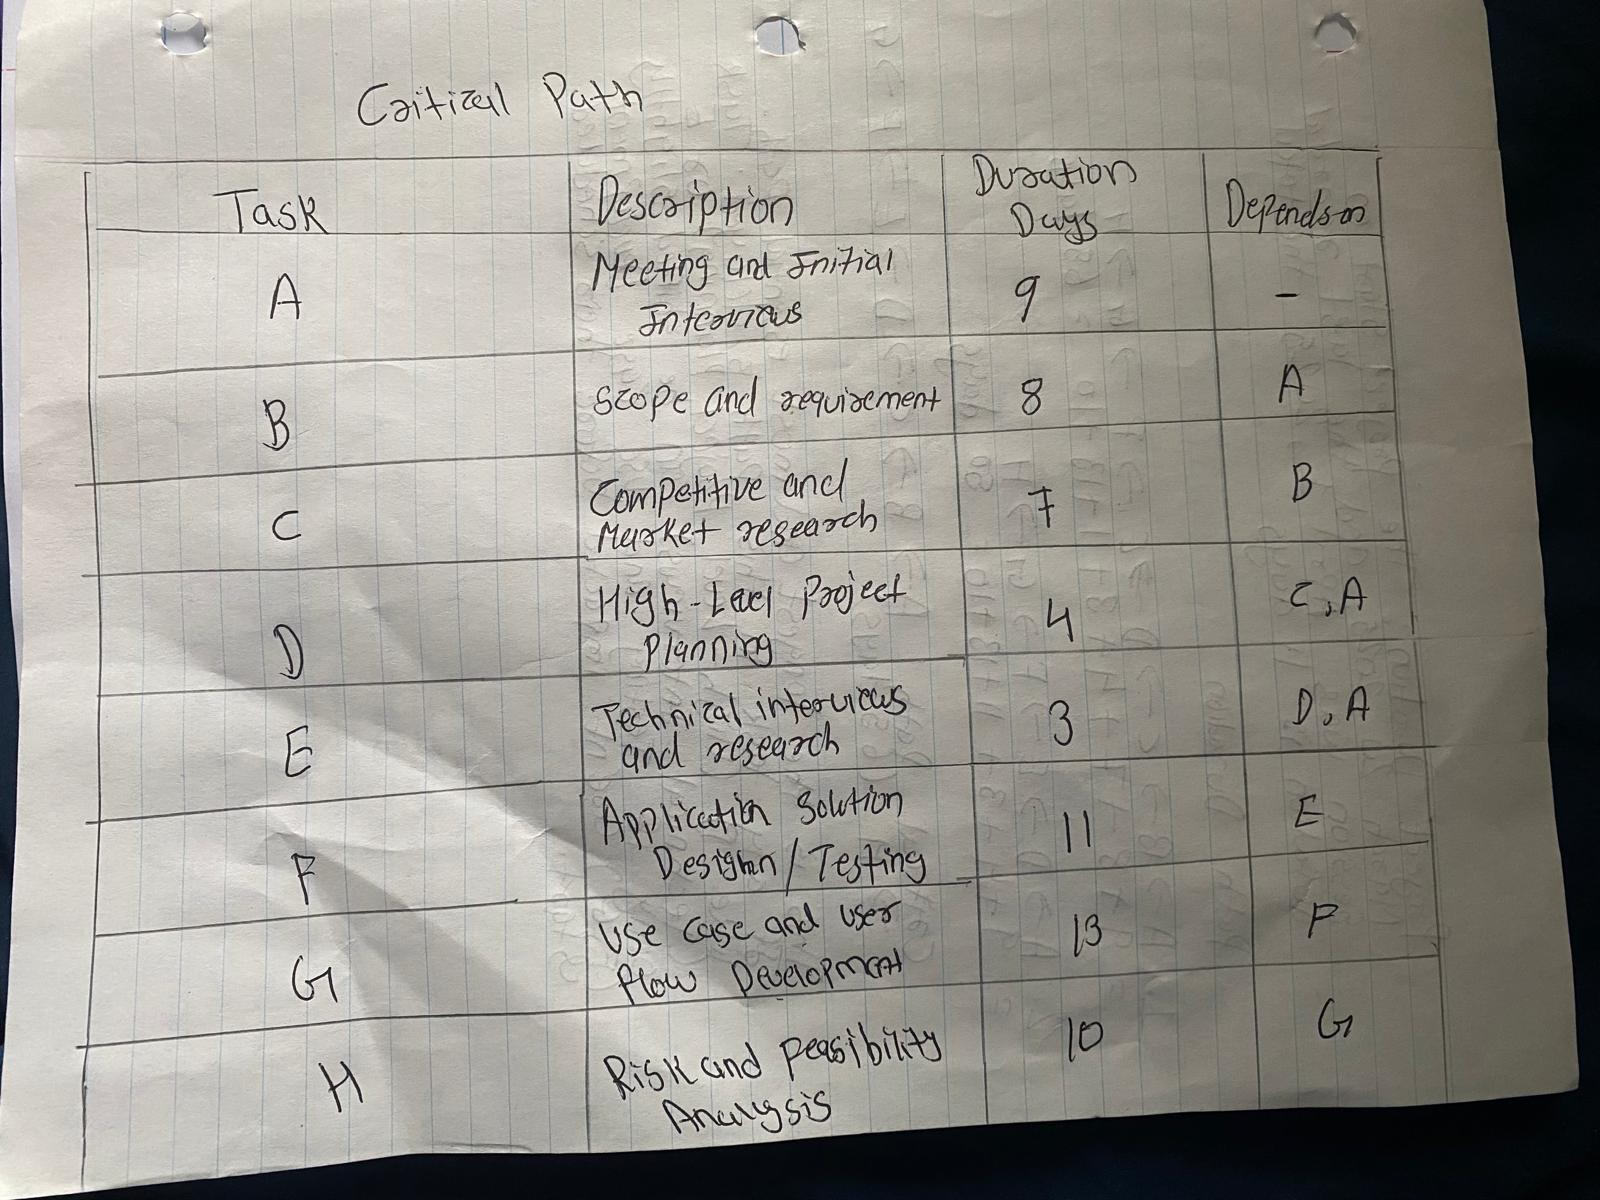 Critical Path
Task Description Duration Days Depends on
A Meeting and Initial Interviews 9 -
B Scope and requirement 8 A
C Competitive and Market research 7 B
D High-Level Project Planning 4 C, A
E Technical interviews and research 3 D, A
F Application Solution Design / Testing 11 E
G Use case and user flow Development 13 F
H Risk and Feasibility Analysis 10 G